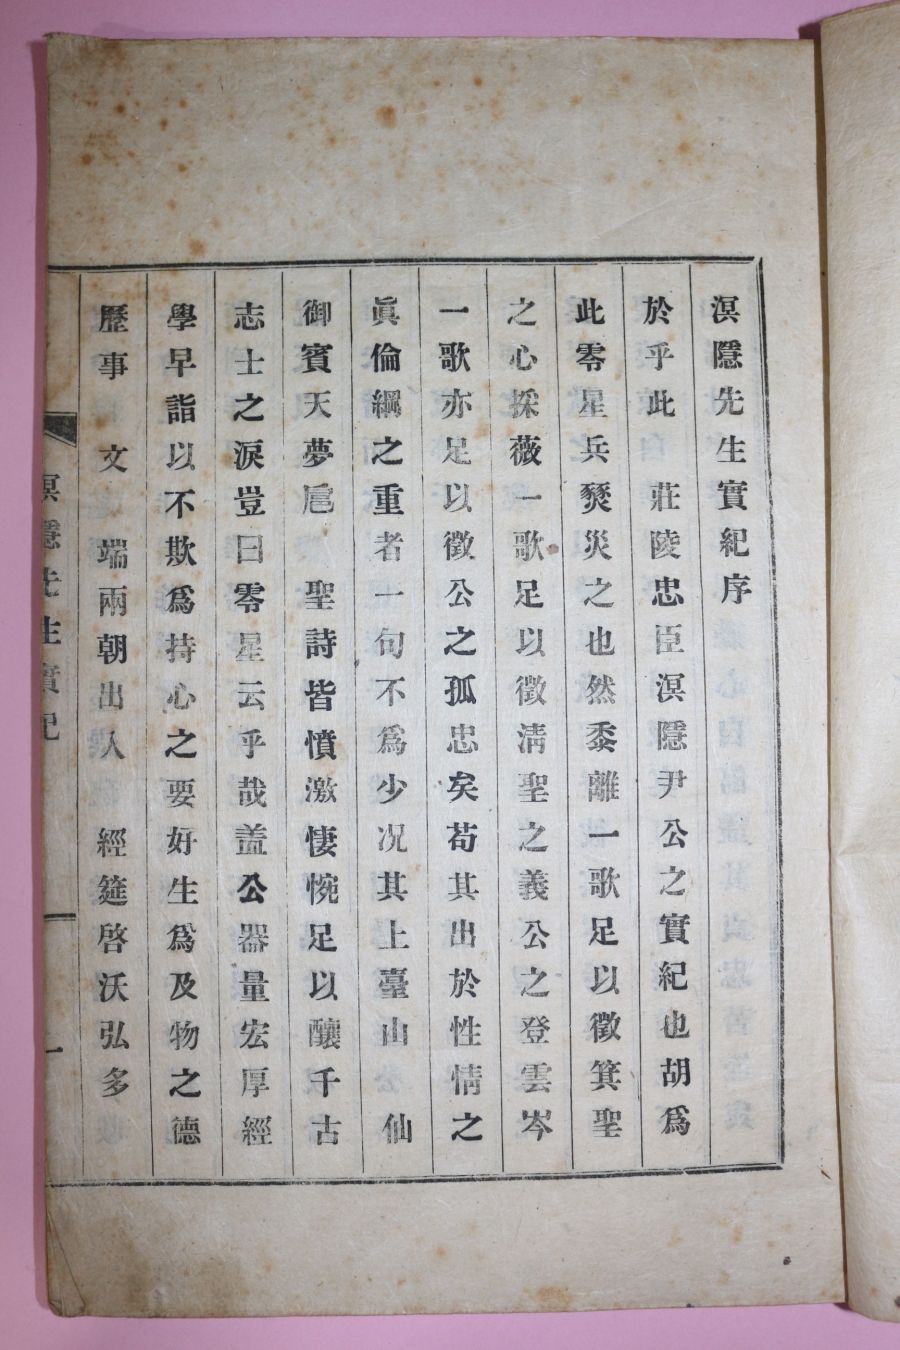 溟隱先生實紀序
於乎此　莊陵忠臣溟隱尹公之實紀也胡爲
此零星兵燹災之也然黍離一歌足以徵箕聖
之心採薇一歌足以徵淸聖之義公之登雲岑
一歌亦足以徵公之孤忠矣苟其出於性情之
眞倫綱之重者一句不爲少况其上臺山　仙
御賓天夢扈　聖詩皆憤激悽惋足以釀千古
志士之淚豈曰零星云乎哉盖公器量宏厚經
學早詣以不欺爲持心之要好生爲及物之德
歷事　文　端兩朝出入　經筵啓沃弘多
溟隱先生實紀
一